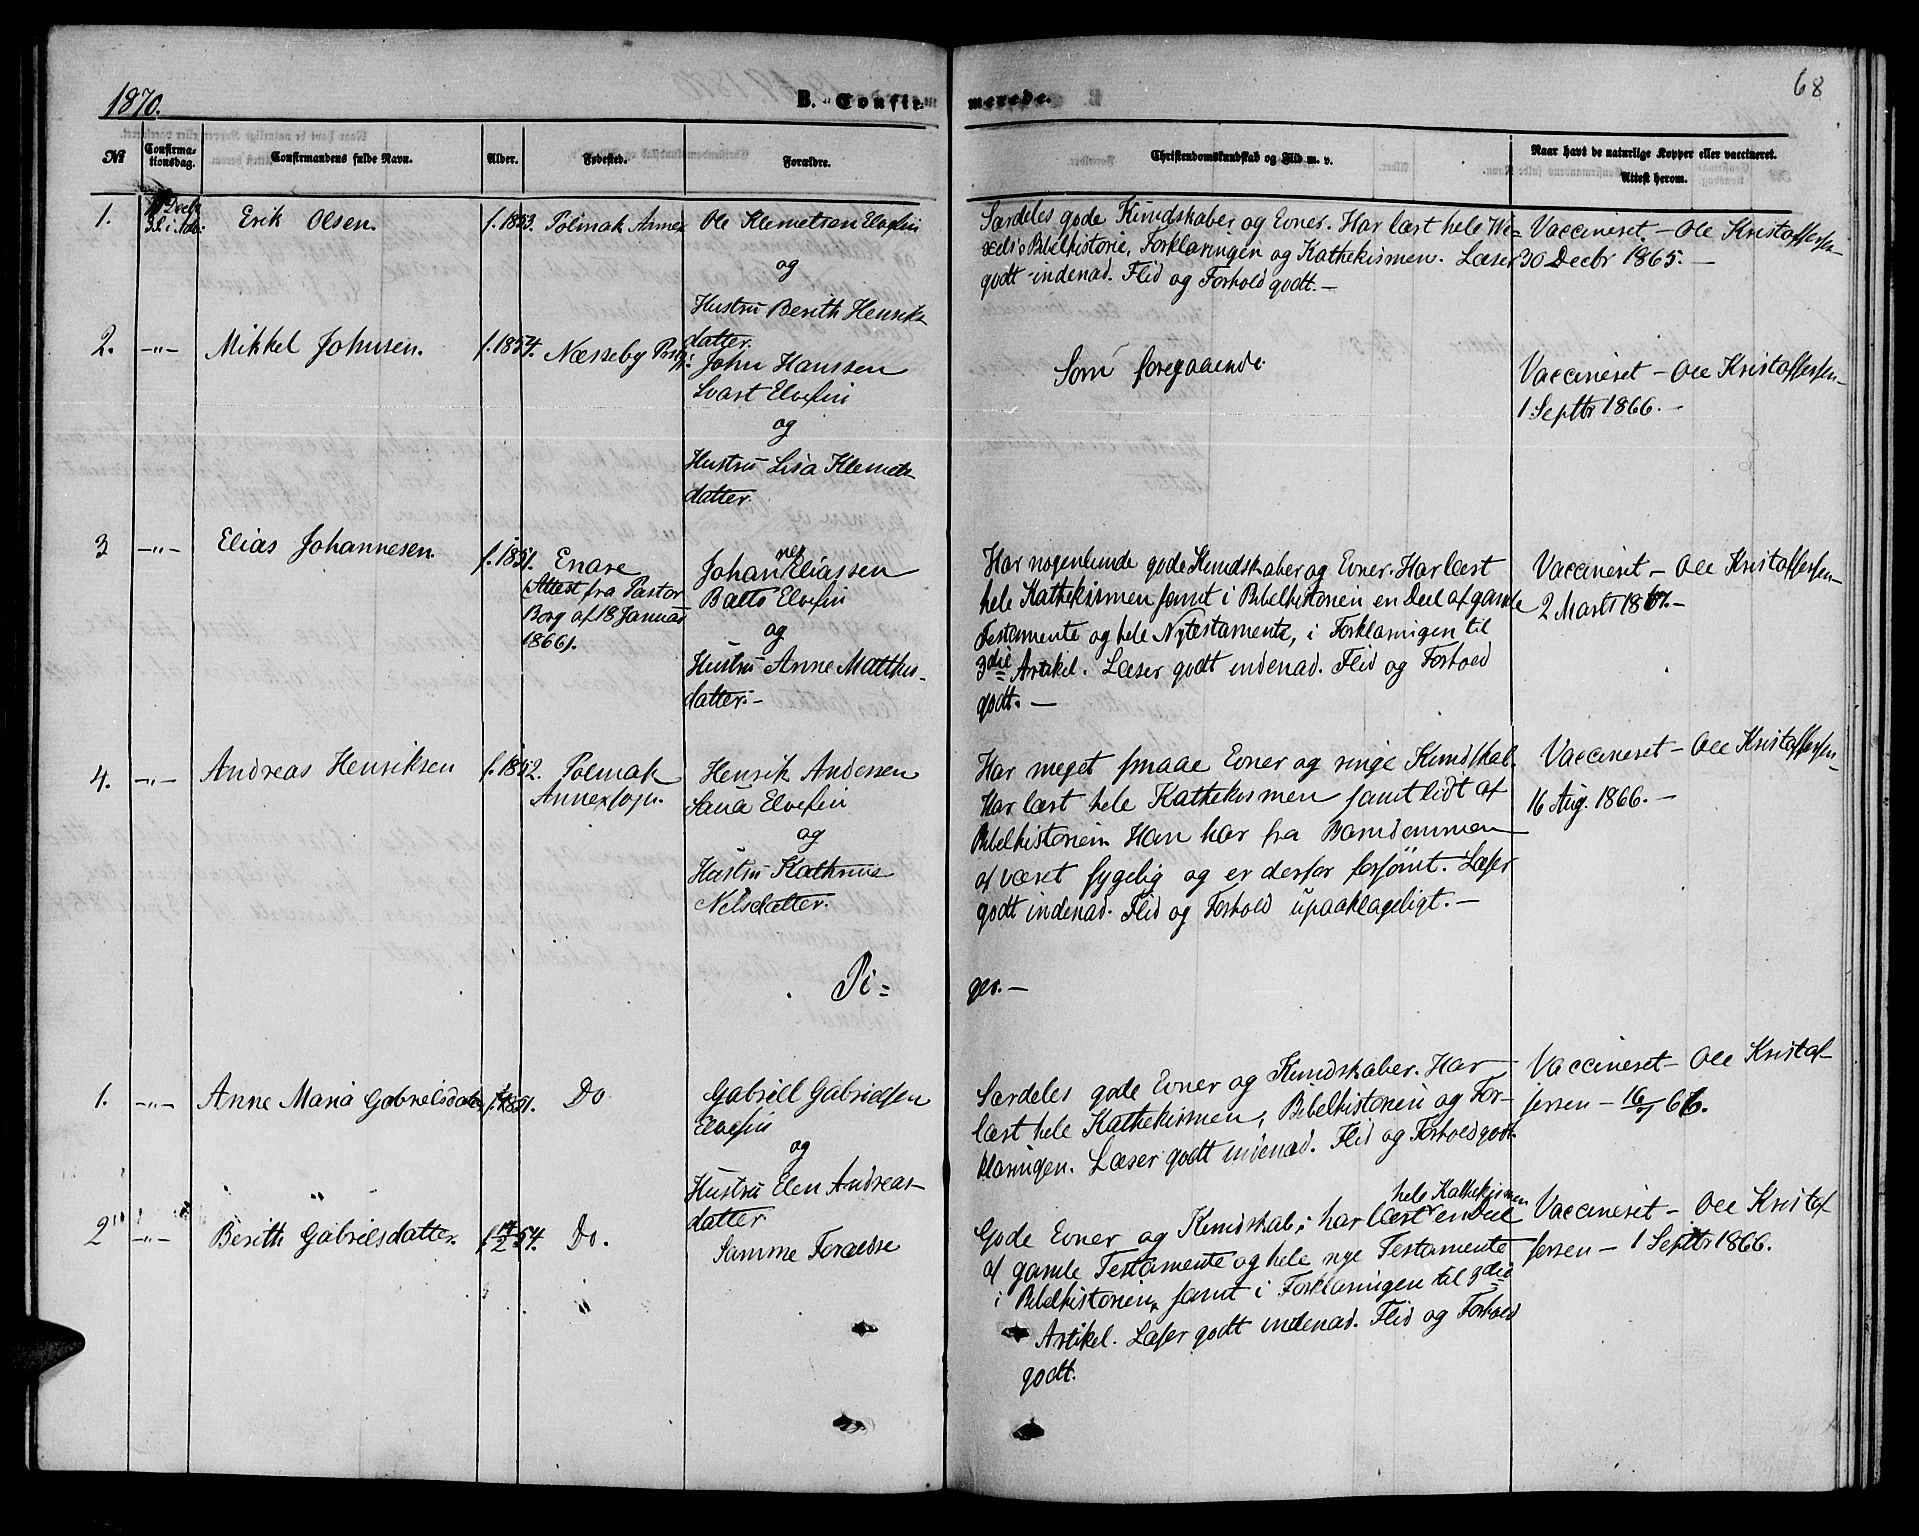 1870.
B. Confir-
merede.
68
No
Confirma-
tionsdag.
Confirmandens fulde Navn.
Alder.
Fødested.
Forældre.
Christendomskundskab og Flid m. v.
Naar havt de naturlige Kopper eller vaccineret.
Attest herom.
1.
Erik Olsen.
f. 1853.
Polmak Annex
Ole Klemetsen Elvefin
og
Hustru Berith Henriks
datter.
Særdeles gode Kundskaber og Evner. Har læst hele We=
xels's Bibelhistorie, Forklaringen og Kathekismen. Læser
godt indenad. Flid og Forhold godt. —
Vaccineret — Ole Kristoffersen
30 Decbr 1865. —
2.
—„—
Mikkel Johnsen.
f. 1854.
Næsseby
John Hanssen
Svart Elvefin
og
Hustru Lisa Klemets
datter.
Som foregaaende.
Vaccineret — Ole Kristoffersen —
1 Septbr 1866. —
3
—„—
Elias Johannesen.
f. 1851.
Enare
Attest fra Pastor
Borg af 18 Januar
1866).
Johannes Eliassen
Balto Elvefin
og
Hustru Anne Matthis-
datter. —
Har nogenlunde gode Kundskaber og Evner. Har læst
hele Kathekismen samt i Bibelhistorien en Deel af gamle
Testamente og hele Ny testamente, i Forklaringen til
3die Artikel. Læser godt indenad. Flid og Forhold
godt. —
Vaccineret — Ole Kristoffersen —
2 Marts 1867. —
4.
—„—
Andreas Henriksen
f. 1852.
Polmak
Annexsogn.
Henrik Andersen
Elvefin
og
Hustru Kathrine
Nilsdatter.
Har meget smaae Evner og ringe Kundskab.
Har læst hele Kathekismen samt lidt af
Bibelhistorien. Han har fra Barndommen
af været sygelig og er derfor forsømt. Læser
godt indenad. Flid og Forhold upaaklageligt. —
Vaccineret — Ole Kristoffersen —
16 Aug. 1866. —
Pi=
ger. —
1.
—„—
Anne Maria Gabrielsdatter
1851.
Do
Gabriel Gabrielsen
Elvefin
og
Hustru Elen Andreas-
datter
Særdeles gode Evner og Kundskaber. Har
læst hele Kathekismen, Bibelhistorien og For-
klaringen. Læser godt indenad. Flid og Forhold godt.
Vaccineret — Ole Kristof
fersen —
2
—„—
Berith Gabrielsdatter.
54.
Do.
Samme Forældre
Gode Evner og Kundskab; har læst hele Kathekismen en Deel
af gamle Testamente og hele nye Testamente
i Bibelhistorien, samt i Forklaringen til 3die
Artikel. Læser godt indenad. Flid og Forhold
godt.
Vaccineret — Ole Kristof
fersen — 1 Septbr 1866.